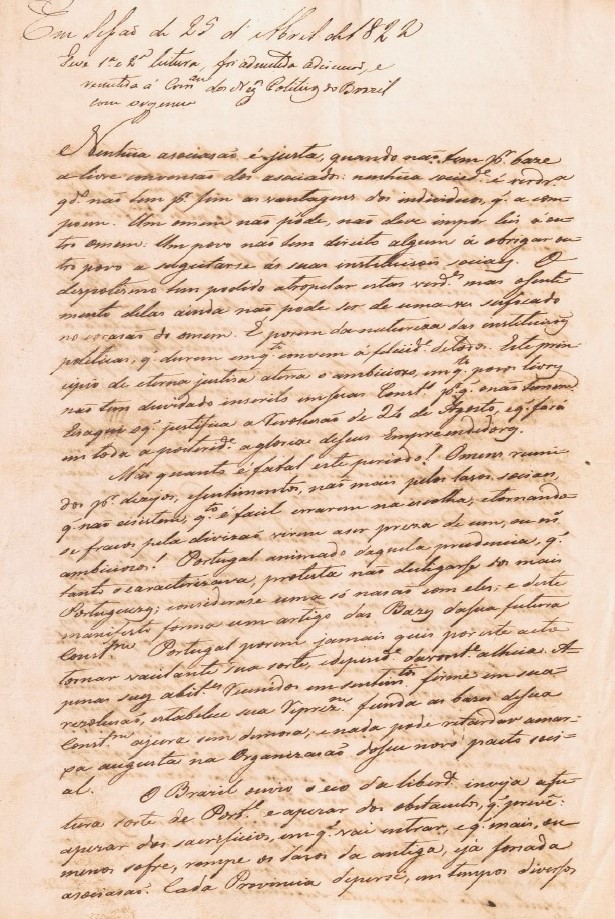 Em Sessaõ de 25 d' Abril de 1822
Teve 1ª e 2ª leitura, foi admettida a discussaõ, e
remetida á Com.am dos Neg.s Politicos do Brazil
com urgencia
Nenhũa asociasaõ é justa, quando naõ tem p.r baze
a livre convensaõ dos asociados: nenhũa socied.e é verd.ra
q.do naõ tem p.r fim as vantagens dos individuos, q. a com-
poem. Um omem naõ pode, naõ deve impor leis a ou-
tro omem. Um povo naõ tem direito algum á obrigar ou-
tro povo a sugeitarse ás suas instituisoẽs sociaes. O
despotismo tem podido atropelar estas verd.es mas o senti-
mento delas ainda naõ pode ser de uma ves sufocado
no corasaõ do omem. É porem da natureza das instituisoẽs
politicas, q. durem emq.to convem á felicid.e de todos. Este prin-
cipio de eterna justisa aterra o ambicioso, emq.to povos livres
naõ tem duvidado inserilo em suas Const.s
Eis aqui o q. justifica a Revolusaõ de 24 de Agosto, e q. fará
em toda a posterid.e a gloria de seus Emprendedores.
Mas quanto é fatal este periodo! Omens reuni-
dos p.r dezejos, e sentimentos, naõ mais pelos lasos sociaes,
q. naõ ezistem, q.to é facil errarem na escolha, e tornando-
se fracos pela divizaõ virem a ser preza de um, ou ms.
ambiciosos! Portugal animado daquela prudencia, q.
tanto o caracterizava, protesta naõ desligarse dos mais
Portuguezes; considerase uma só nasaõ com eles; e deste
manifesto forma um artigo das Bazes da sua futura
Const.am Portugal porem jamais quis por este acto
tornar vacilante sua sorte, e depend.e da vont.e alheia. A-
penas seus abit.es reunidos em sentim.tos firme em sua
rezolusaõ, estabelece sua Reprez.am funda as bazes de sua
Const.am a jura sem demora; e nada pode retardar a mar-
xa augusta na Organizasaõ do seu novo pacto soci-
al.
O Brazil ouvio o eco da liberd.e inveja a fu-
tura sorte de Port.l e apezar dos obstaculos, q. prevê:
apezar dos sacrificios, em q. vai entrar, e q. mais, ou
menos sofre, rompe os lasos da antiga, e ja forsada
asociasaõ. Cada Provincia de per si, em tempos diversos